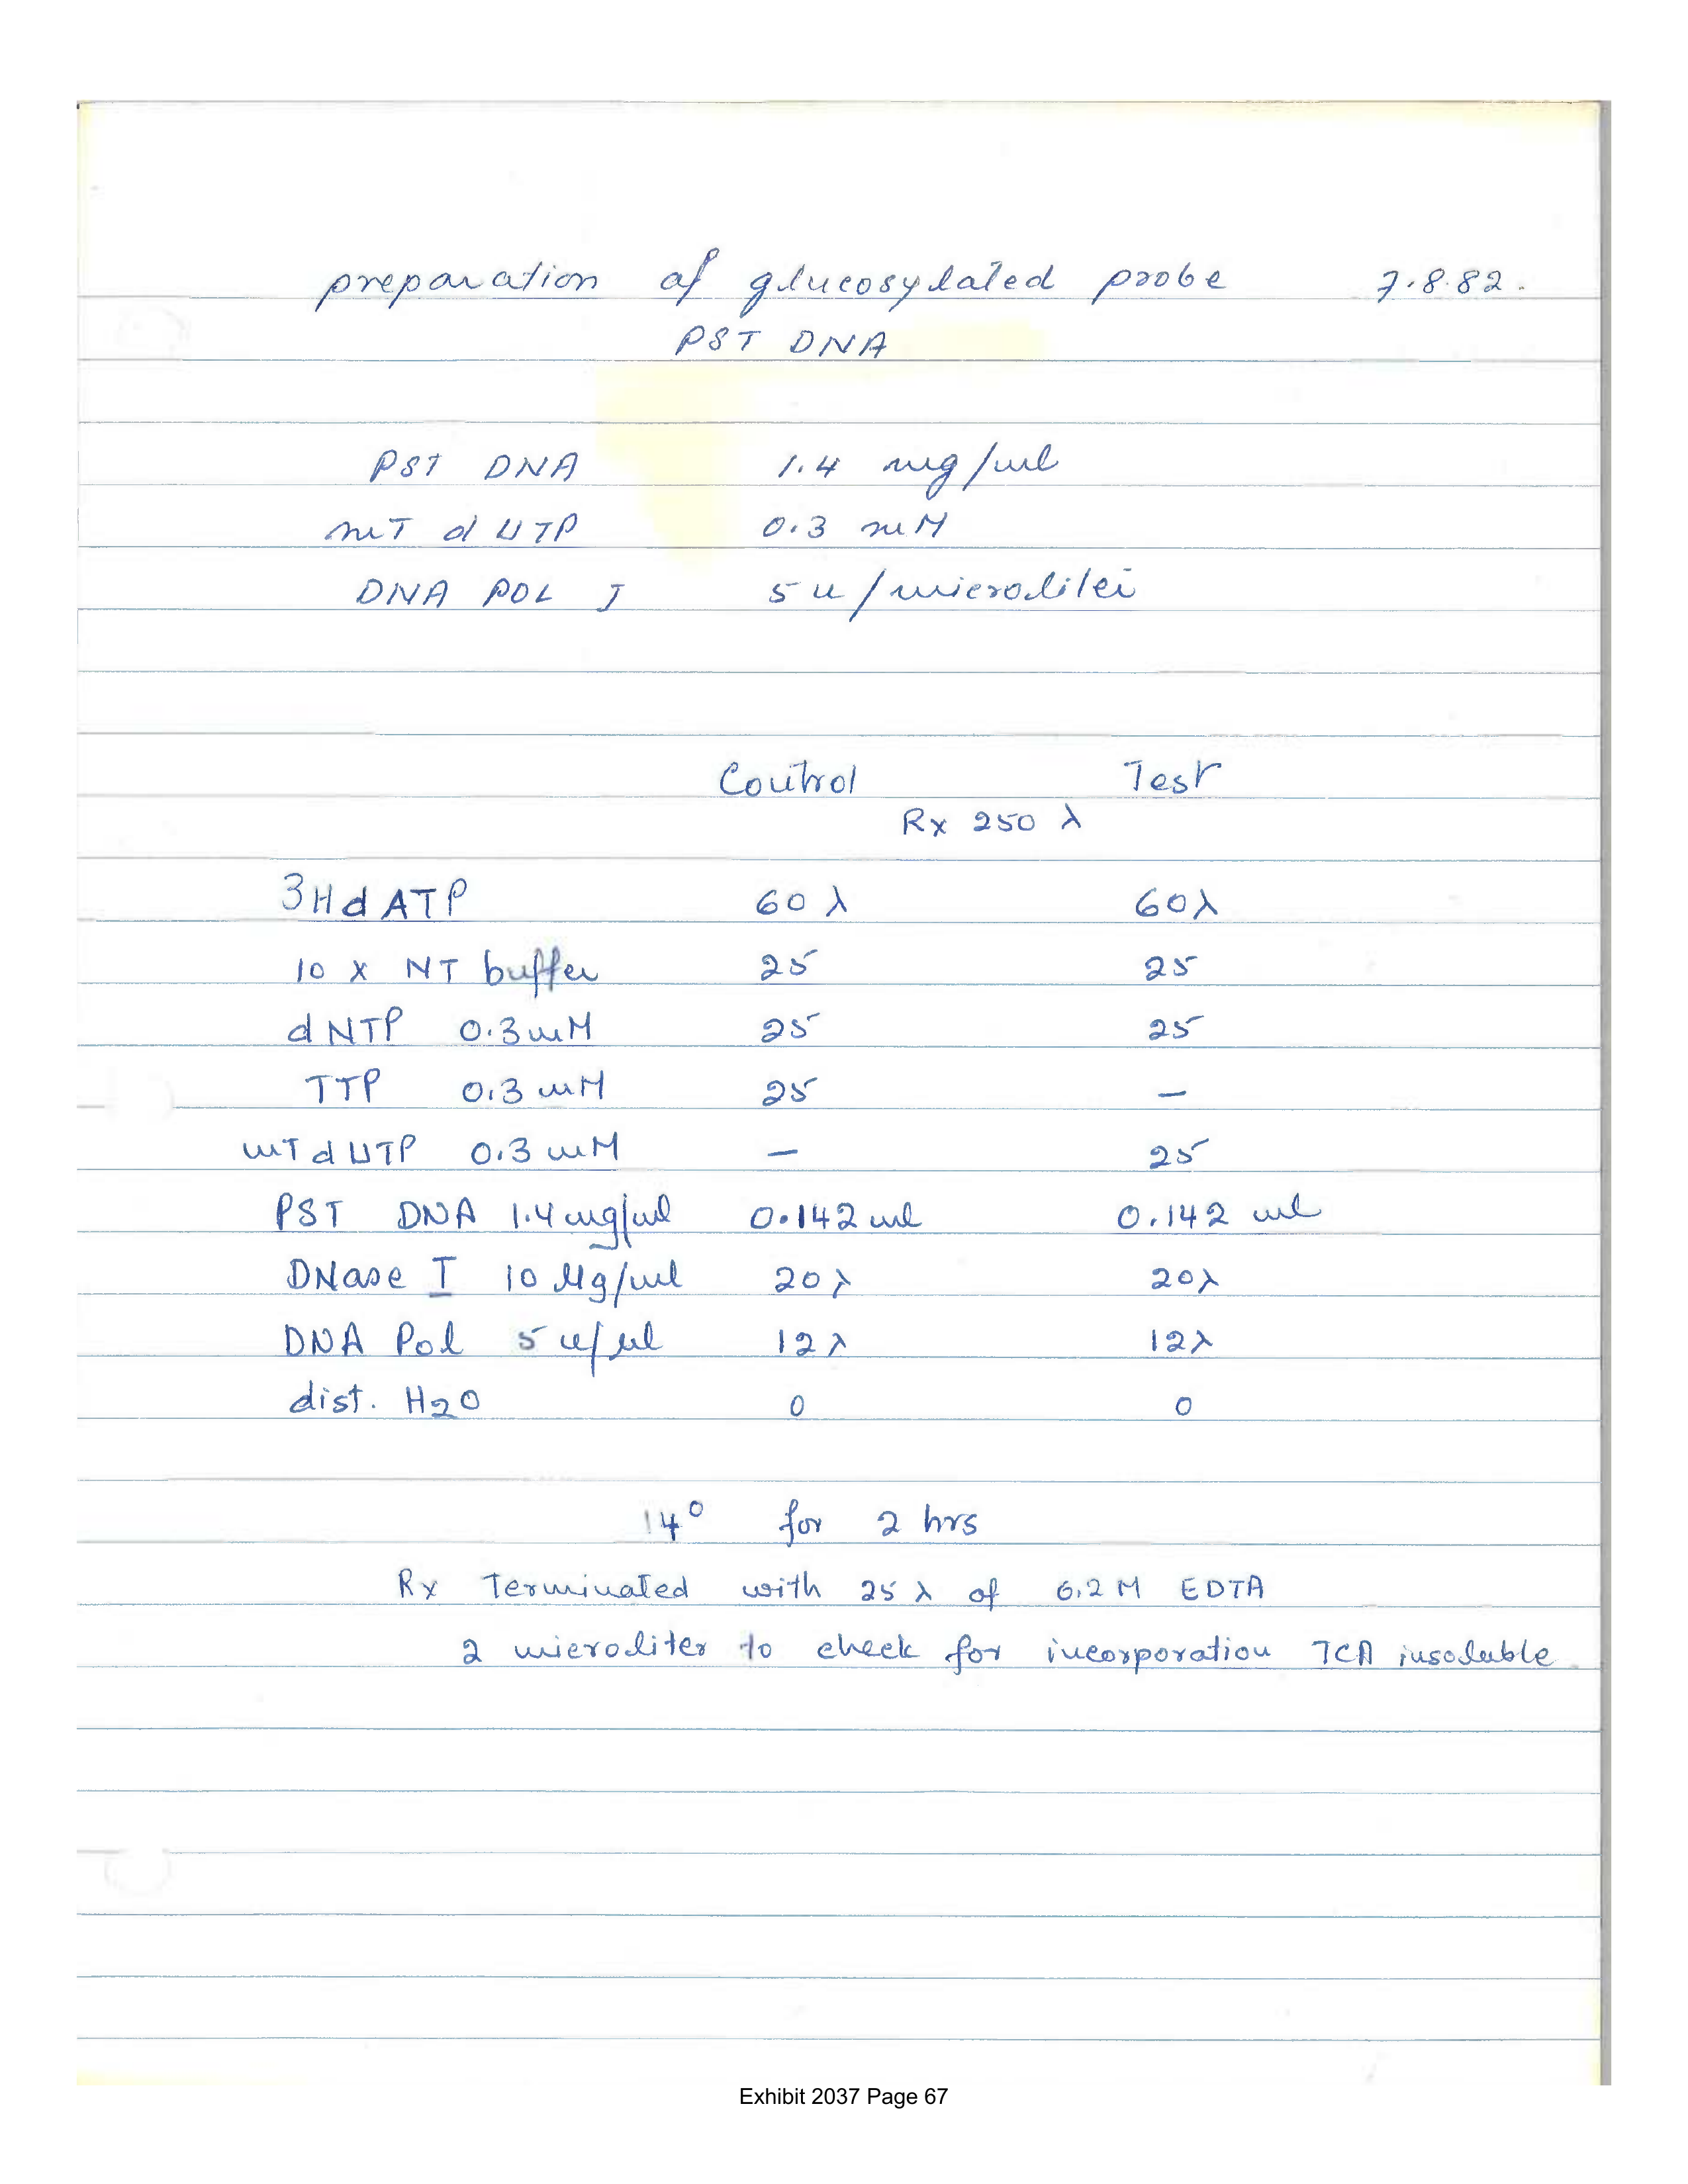 preparation of glucosylated probe 7.8.82.
PST DNA
PST DNA 1.4 mg/ml
mT d UTP 0.3 mM
DNA POL I 5 u/microliter
Control Test
Rx 250 λ
3H d ATP 60 λ 60 λ
10 x NT buffer 25 25
d NTP 0.3 mM 25 25
TTP 0.3 mM 25 —
mT d UTP 0.3 mM — 25
PST DNA 1.4 mg/ml 0.142 ml 0.142 ml
DNase I 10 μg/ml 20 λ 20 λ
DNA Pol 5 u/μl 12 λ 12 λ
dist. H2O 0 0
14° for 2 hrs
Rx Terminated with 25 λ of 0.2 M EDTA
2 microliter to check for incorporation TCA insoluble.
Exhibit 2037 Page 67